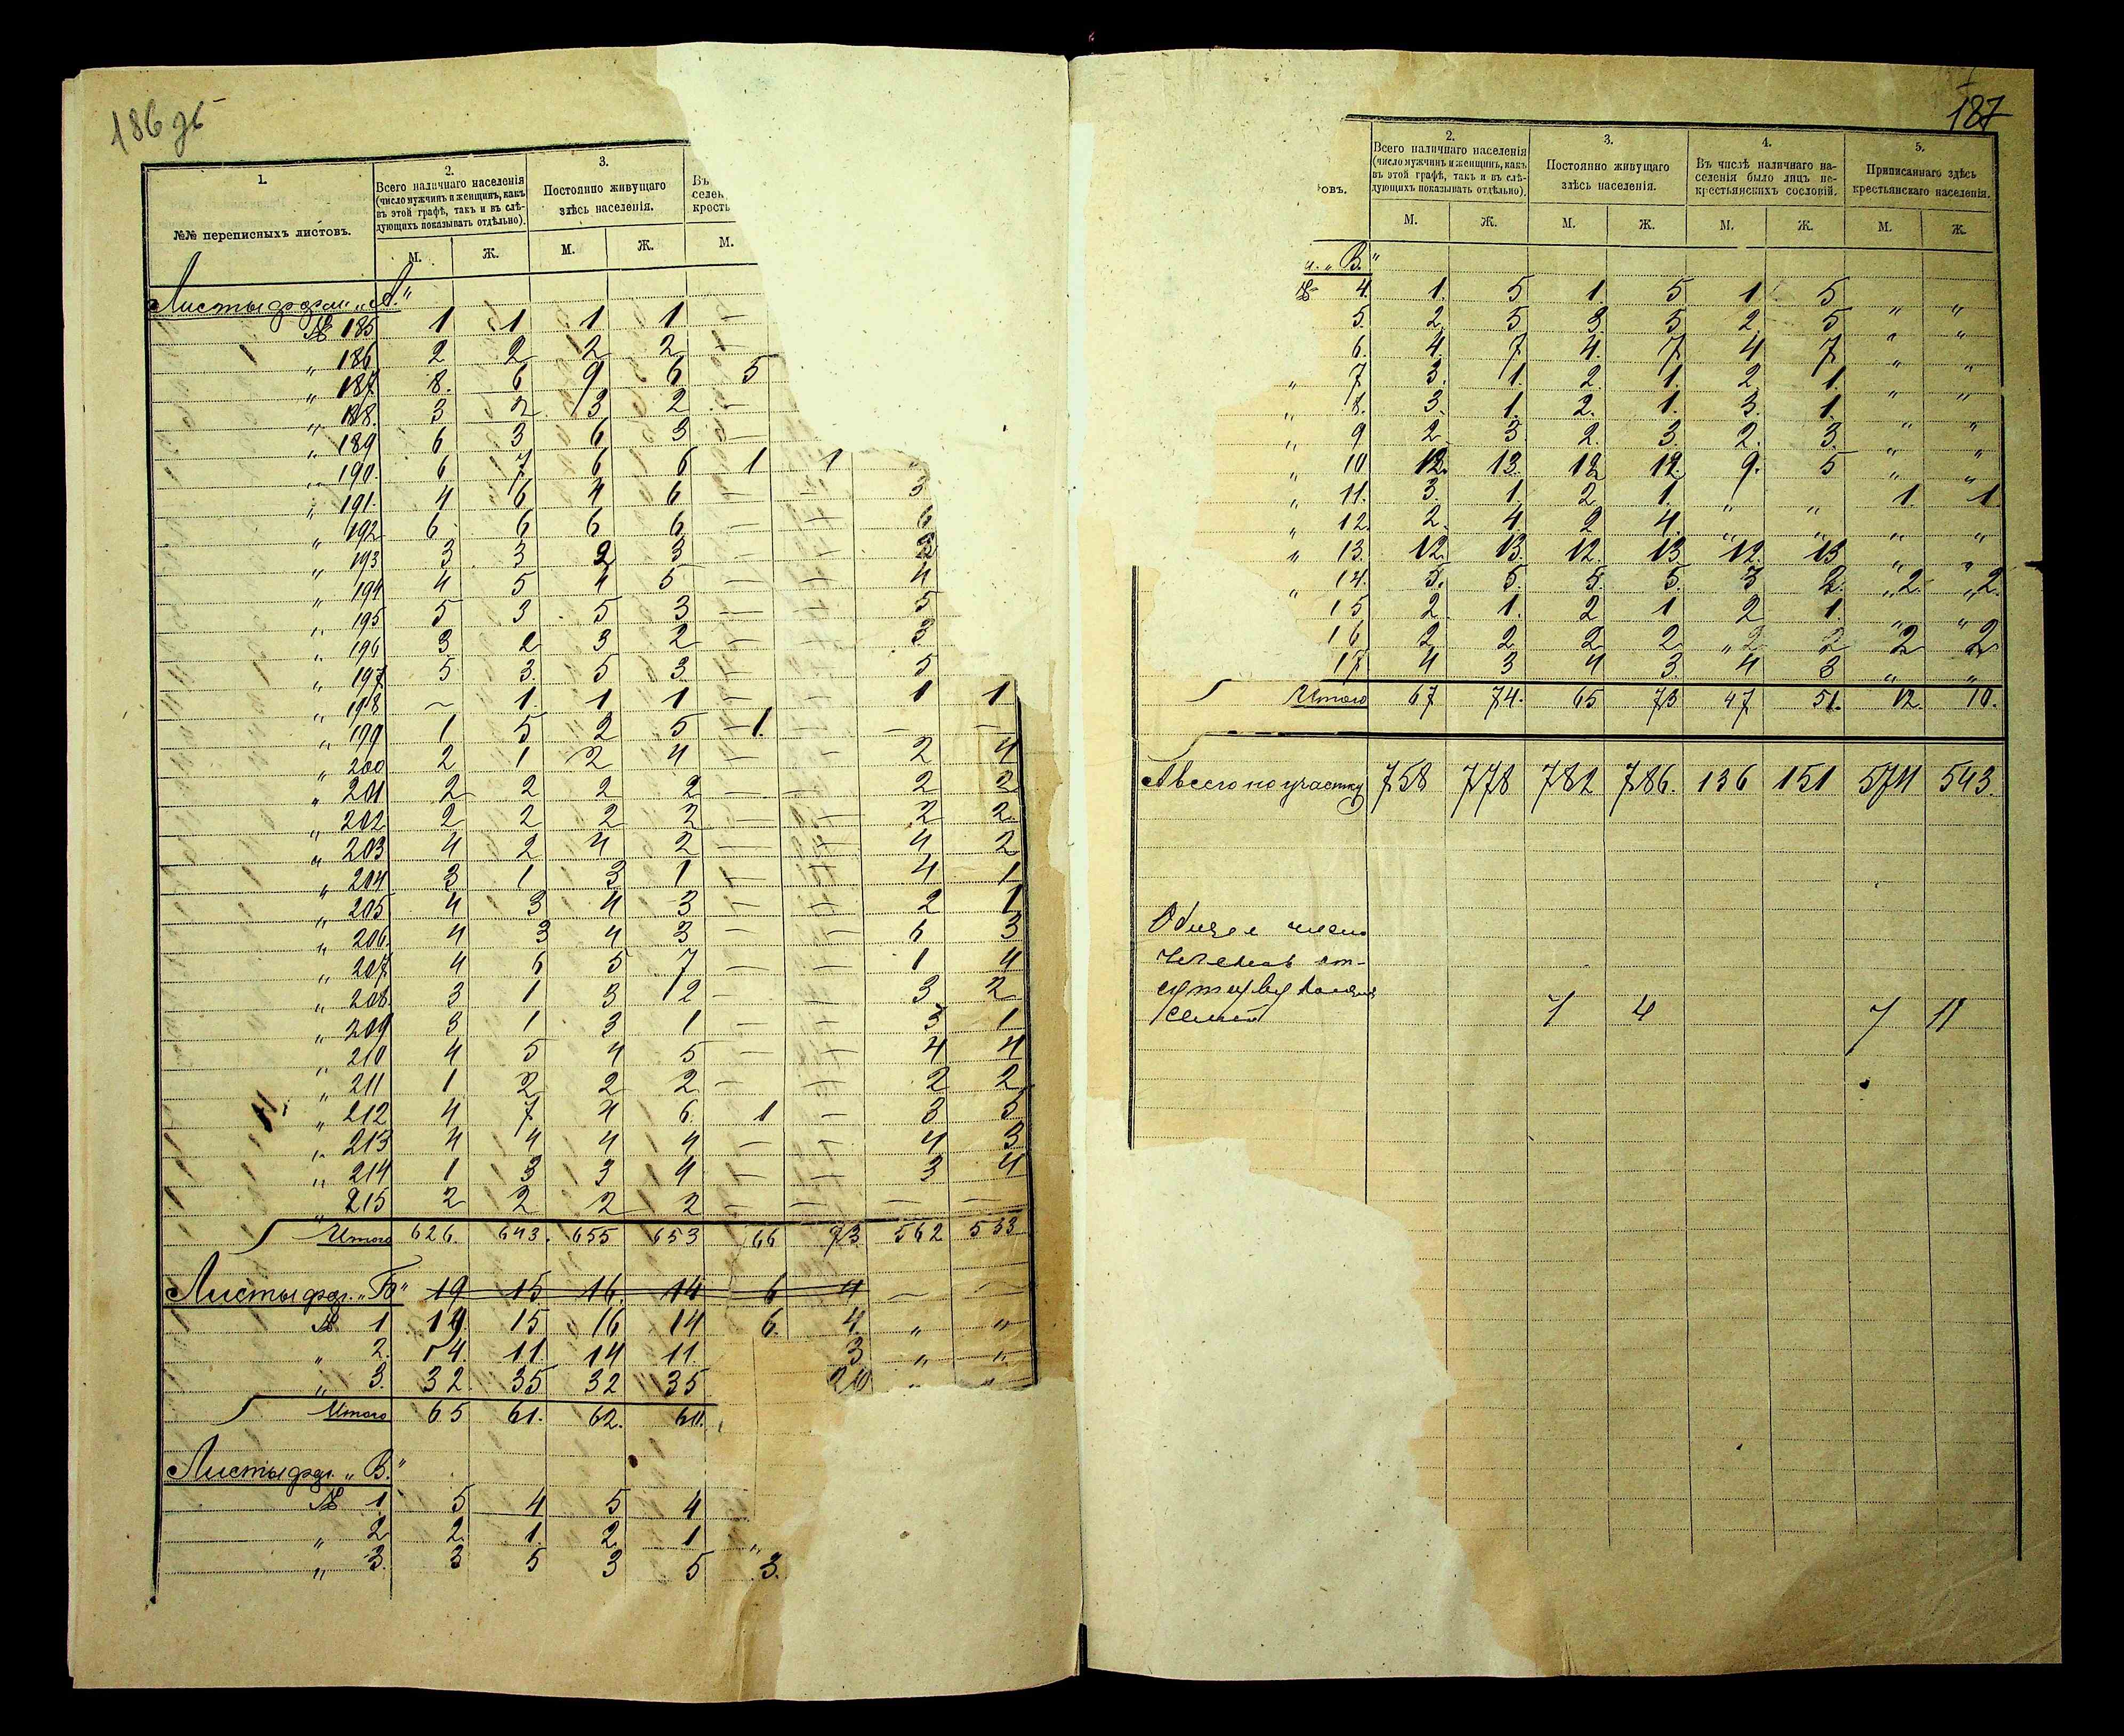 186 об
1.
2.
3.
№№ переписныхъ листовъ.
Всего наличнаго населенія
(число мужчинъ и женщинъ, какъ
въ этой графѣ, такъ и въ слѣ-
дующихъ показывать отдѣльно).
Постоянно живущаго
здѣсь населенія.
Въ
селен
кресть
М. Ж. М. Ж. М.
Листы форм. „А."
№ 185 1 1 1 1 —
„ 186 2 2 2 2 —
„ 187 8. 6 9 6 5
„ 188. 3 2 3 2 —
„ 189 6 3 6 3 —
„ 190. 6 7 6 6 1 1
„ 191. 4 6 4 6 — — 3
„ 192 6 6 6 6 — — 6
„ 193 3 3 2 3 — —
„ 194 4 5 4 5 — — 4
„ 195 5 3 5 3 — — 5
„ 196 3 2 3 2 — — 3
„ 197 5 3. 5 3 — — 5
„ 198 — 1. 1 1 — — 1 1
„ 199 1 5 2 5 1. — — —
„ 200 2 1 2 4 — — 2 4
„ 201 2 2 2 2 — — 2 2
„ 202 2 2 2 2 — — 2 2
„ 203 4 2 4 2 — — 4 2
„ 204 3 1 3 1 — — 4 1
„ 205 4 3 4 3 — — 2 1
„ 206 4 3 4 3 — — 3
„ 207 4 6 5 7 — — 1 4
„ 208 3 1 3 2 — — 3 2
„ 209 3 1 3 1 — — 3 1
„ 210 4 5 4 5 — — 4 4
„ 211 1 2 2 2 — — 2 2
„ 212 4 7 4 6 1 — 3 5
„ 213 4 4 4 4 — — 4 3
„ 214 1 3 3 4 — — 3 4
„ 215 2 2 2 2 — — — —
Итого 626. 643. 655 653 66 73 562 533
Листы фор. „Б" 19 15 16 14 6 4 — —
№ 1 19 15 16 14 6. 4. „ „
„ 2. 14. 11 14 11 3 „ „
„ 3. 32 35 32 35 20 „ „
Итого 65 61. 62. 60.
Листы фор. „В."
№ 1 5 4 5 4
„ 2 2 1. 2 1 „
„ 3. 3 5 3 5 3.
187
2.
3.
4.
5.
овъ.
Всего наличнаго населенія
(число мужчинъ и женщинъ, какъ
въ этой графѣ, такъ и въ слѣ-
дующихъ показывать отдѣльно).
Постоянно живущаго
здѣсь населенія.
Въ числѣ наличнаго на-
селенія было лицъ не-
крестьянскихъ сословій.
Приписаннаго здѣсь
крестьянскаго населенія.
М. Ж. М. Ж. М. Ж. М. Ж.
„В."
№ 4. 1. 5 1. 5 1 5 „ „
5. 2 5 3 5 2 5 „ „
6. 4. 7 4. 7 4 7 „ „
„ 7 3. 1. 2. 1. 2 1. „ „
„ 8. 3. 1. 2. 1. 3. 1. „ „
„ 9 2 3 2. 3. 2. 3. „ „
„ 10 12. 13. 12 12. 9. 5 „ „
„ 11. 3. 1. 2 1. „ „ 1. 1.
„ 12. 2. 4. 2 4. „ „ „ „
„ 13. 12 13. 12. 13 12. 13 „ „
„ 14. 5. 5. 5. 5. 3 2. „ 2. „ 2.
15 2 1. 2 1 2 1. „ „
16 2 2 2 2 „ 2 2 2 2
17 4 3 4 3. 4 3 „ „
Итого 67 74. 65 73 47 51. 12. 10.
А всего по участку 758 778 782 786. 136 151 574 543.
Общее число
членов от-
сутствующих
семей 7 4 7 11